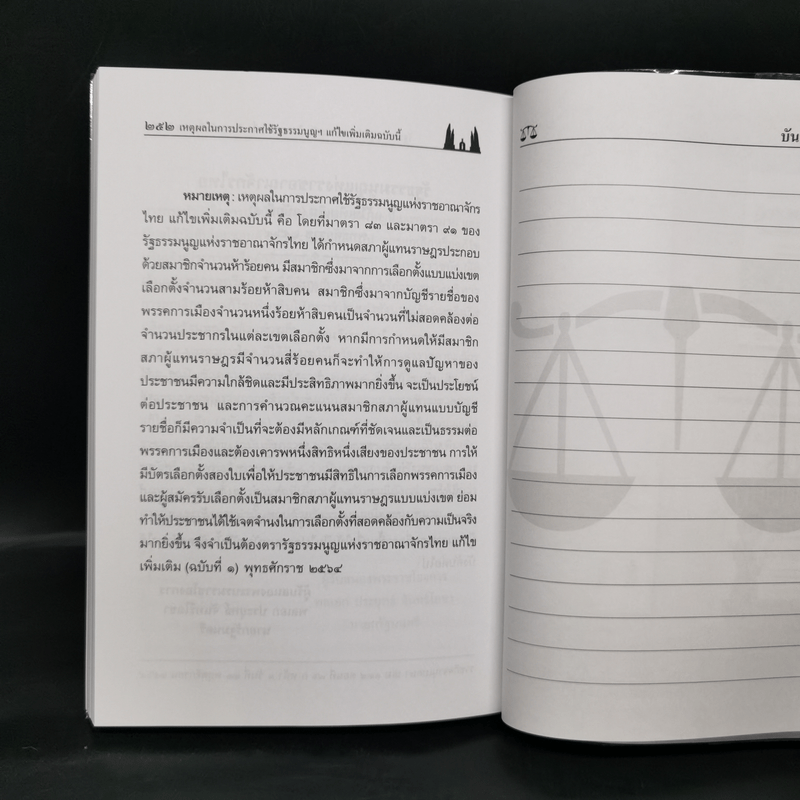 ๒๕๒ เหตุผลในการประกาศใช้รัฐธรรมนูญฯ แก้ไขเพิ่มเติมฉบับนี้
หมายเหตุ : เหตุผลในการประกาศใช้รัฐธรรมนูญแห่งราชอาณาจักร
ไทย แก้ไขเพิ่มเติมฉบับนี้ คือ โดยที่มาตรา ๘๓ และมาตรา ๙๑ ของ
รัฐธรรมนูญแห่งราชอาณาจักรไทย ได้กำหนดสภาผู้แทนราษฎรประกอบ
ด้วยสมาชิกจำนวนห้าร้อยคน มีสมาชิกซึ่งมาจากการเลือกตั้งแบบแบ่งเขต
เลือกตั้งจำนวนสามร้อยห้าสิบคน สมาชิกซึ่งมาจากบัญชีรายชื่อของ
พรรคการเมืองจำนวนหนึ่งร้อยห้าสิบคนเป็นจำนวนที่ไม่สอดคล้องต่อ
จำนวนประชากรในแต่ละเขตเลือกตั้ง หากมีการกำหนดให้มีสมาชิก
สภาผู้แทนราษฎรมีจำนวนสี่ร้อยคนก็จะทำให้การดูแลปัญหาของ
ประชาชนมีความใกล้ชิดและมีประสิทธิภาพมากยิ่งขึ้น จะเป็นประโยชน์
ต่อประชาชน และการคำนวณคะแนนสมาชิกสภาผู้แทนแบบบัญชี
รายชื่อก็มีความจำเป็นที่จะต้องมีหลักเกณฑ์ที่ชัดเจนและเป็นธรรมต่อ
พรรคการเมืองและต้องเคารพหนึ่งสิทธิหนึ่งเสียงของประชาชน การให้
มีบัตรเลือกตั้งสองใบเพื่อให้ประชาชนมีสิทธิในการเลือกพรรคการเมือง
และผู้สมัครรับเลือกตั้งเป็นสมาชิกสภาผู้แทนราษฎรแบบแบ่งเขต ย่อม
ทำให้ประชาชนได้ใช้เจตจำนงในการเลือกตั้งที่สอดคล้องกับความเป็นจริง
มากยิ่งขึ้น จึงจำเป็นต้องตรารัฐธรรมนูญแห่งราชอาณาจักรไทย แก้ไข
เพิ่มเติม (ฉบับที่ ๑) พุทธศักราช ๒๕๖๔
บัน